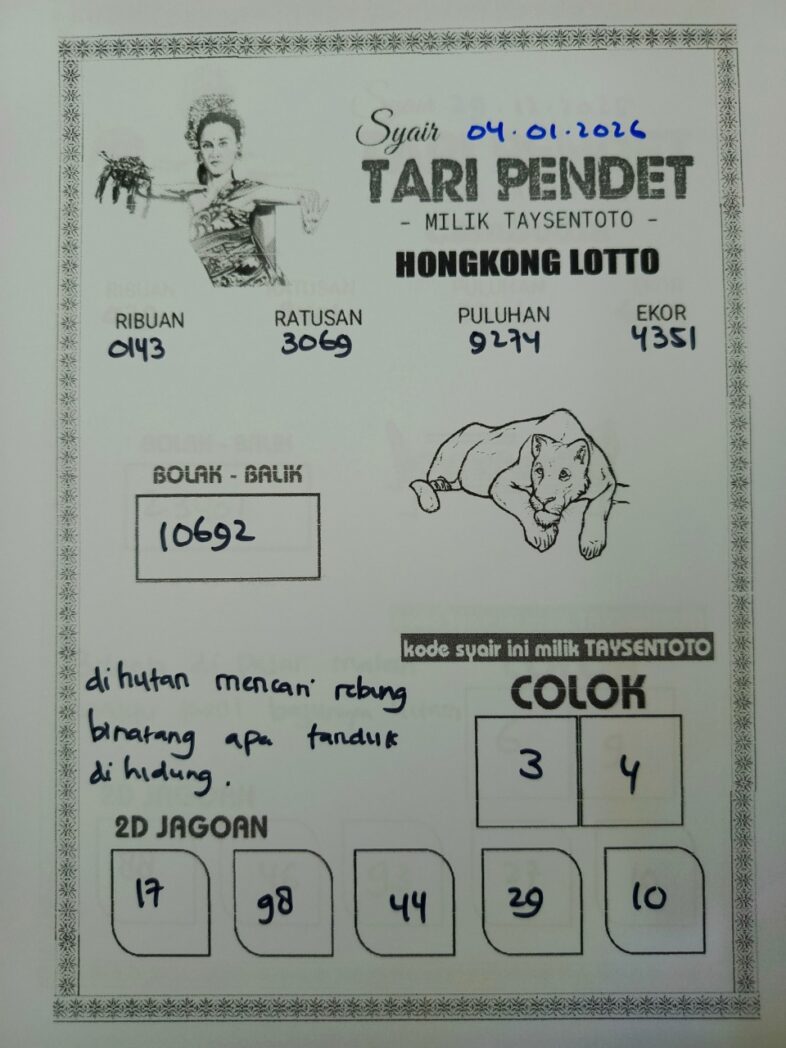 Syair 04.01.2026
TARI PENDET
- MILIK TAYSENTOTO -
HONGKONG LOTTO
RIBUAN RATUSAN PULUHAN EKOR
0143 3069 9274 4351
BOLAK - BALIK
10692
kode syair ini milik TAYSENTOTO
di hutan mencari rebung
binatang apa tanduk
di hidung.
COLOK
3 4
2D JAGOAN
17 98 44 29 10